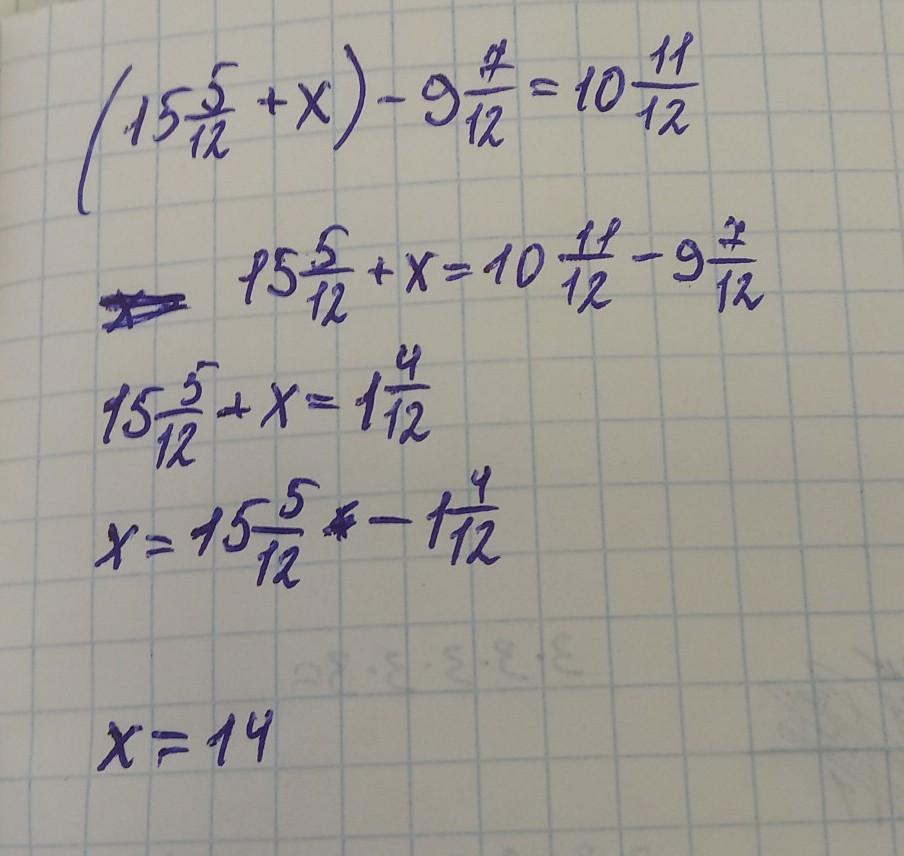 (15 5/12 + x) - 9 7/12 = 10 11/12
15 5/12 + x = 10 11/12 - 9 7/12
15 5/12 + x = 1 4/12
x = 15 5/12 - 1 4/12
x = 14